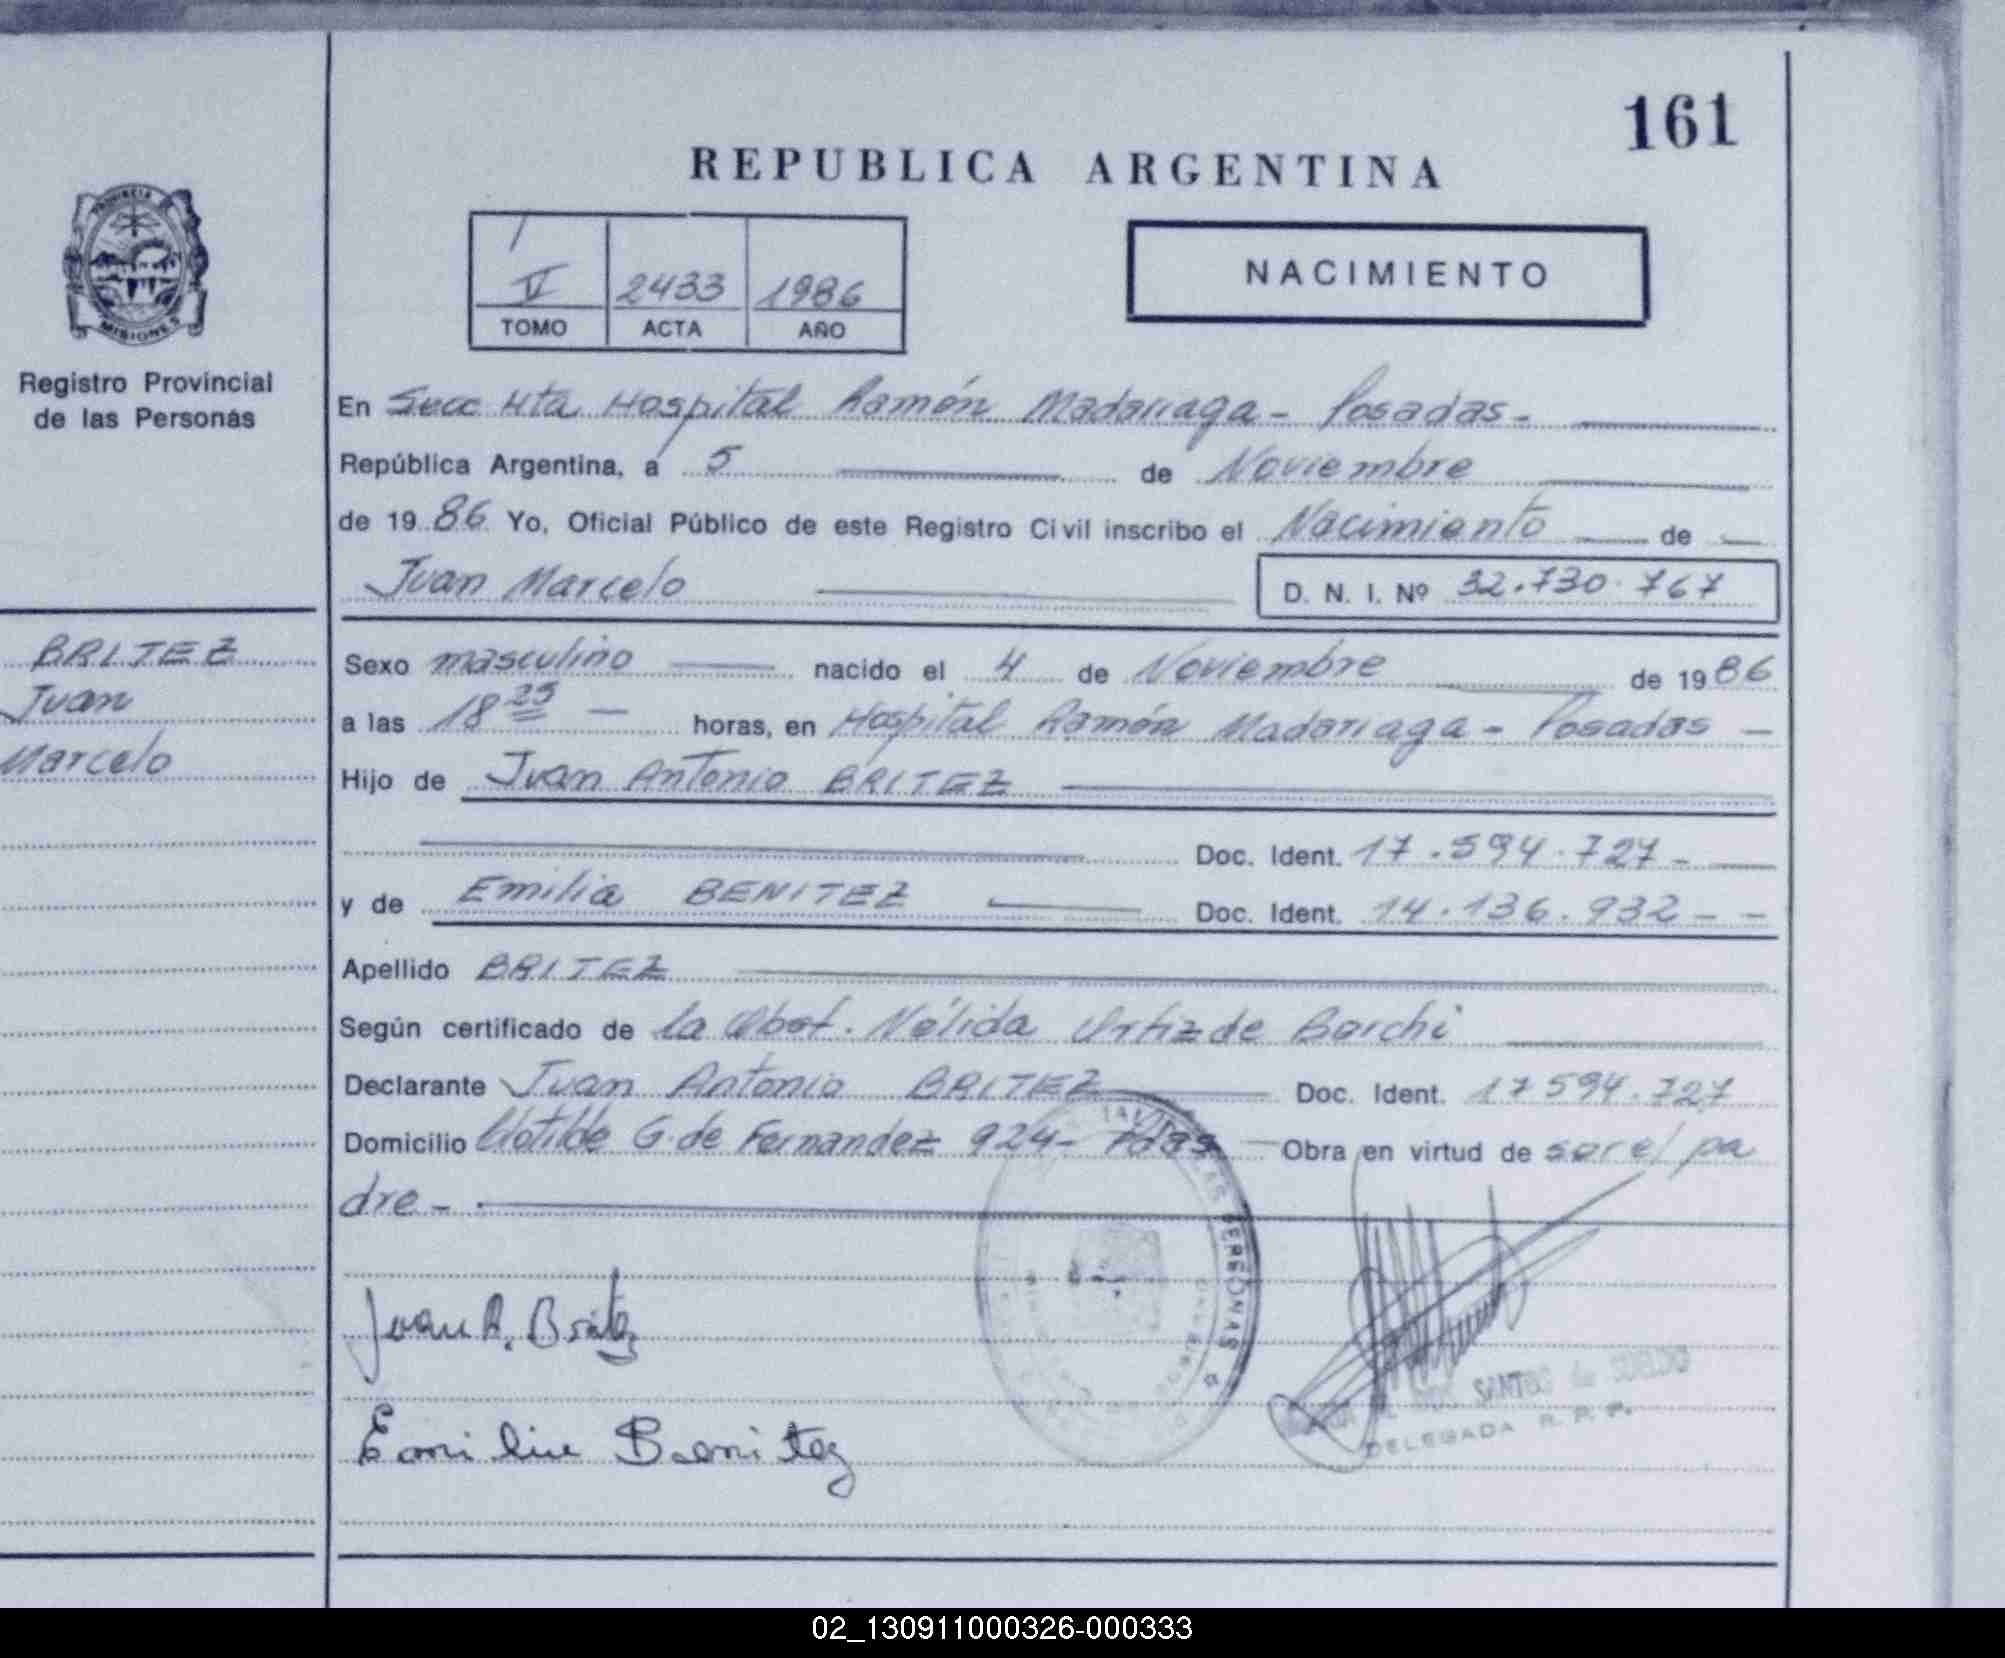 161
REPUBLICA ARGENTINA
PROVINCIA
MISIONES
Registro Provincial
de las Personas
V 2433 1986
TOMO ACTA AÑO
NACIMIENTO
En Secc Hta Hospital Ramón Madariaga - Posadas -
República Argentina, a 5 de Noviembre
de 1986 Yo, Oficial Público de este Registro Civil inscribo el Nacimiento de
Juan Marcelo D. N. I. Nº 32.730.767
BRITEZ
Juan
Marcelo
Sexo masculino nacido el 4 de Noviembre de 1986
a las 18 25 horas, en Hospital Ramón Madariaga - Posadas -
Hijo de Juan Antonio BRITEZ
Doc. Ident. 17.594.727 -
y de Emilia BENITEZ Doc. Ident. 14.136.932 - -
Apellido BRITEZ
Según certificado de la Obst. Nélida Ortiz de Barchi
Declarante Juan Antonio BRITEZ Doc. Ident. 17594.727
Domicilio Clotilde G. de Fernandez 924 - Pdas - Obra en virtud de ser el pa
dre -
PERSONAS
Juan A. Britez
SANTOS de
DELEGADA R. P. P.
Emilia Benitez
02_130911000326-000333